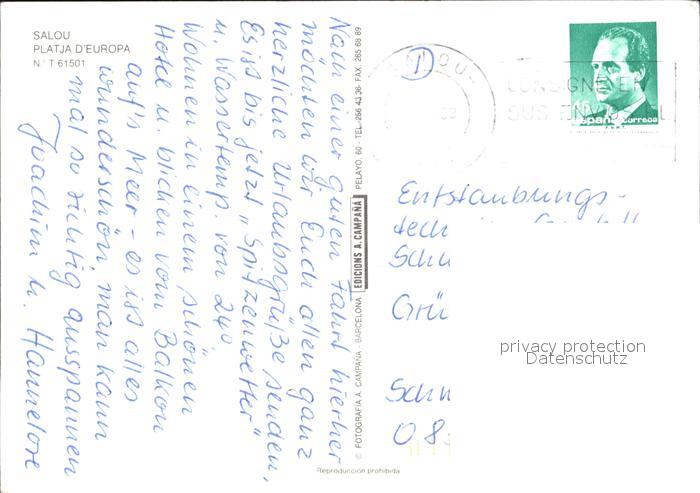 SALOU
PLATJA D'EUROPA
N.° T 61501
Nach einer guten Fahrt hierher
möchten wir Euch allen ganz
herzliche Urlaubsgrüße senden,
Es ist bis jetzt "Spitzenwetter"
u. Wassertemp. von 24°.
Wohnen in einem schönen
Hotel u. blicken vom Balkon
auf's Meer - es ist alles
wunderschön, man kann
mal so richtig ausspannen
Joachim u. Hannelore
© FOTOGRAFIA A. CAMPAÑA - BARCELONA EDICIONS A. CAMPAÑA PELAYO, 60 - TEL. 256 43 36 - FAX. 265 68 89
Reproducción prohibida
CONSIGNE EL
España correos
Entstaubungs-
tech
Schu
Grü
Schu
08
privacy protection
Datenschutz